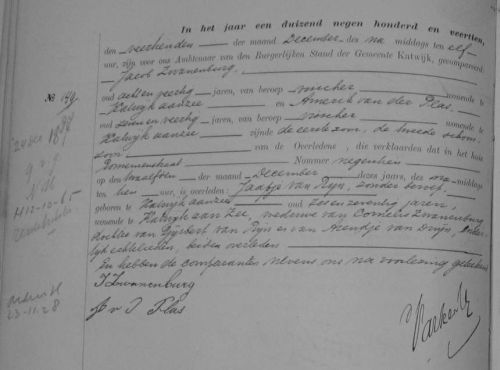 In het jaar een duizend negen honderd en veertien,
den veertienden der maand December des na middags ten elf
ure, zijn voor ons Ambtenaar van den Burgerlijken Stand der Gemeente Katwijk, gecompareerd:
Jacob Zwanenburg,
№ 149. oud acht en veertig jaren, van beroep visscher wonende te
Katwijk aan zee en Amerik van der Plas
oud zeven en veertig jaren, van beroep visscher wonende te
Katwijk aan zee zijnde de eerste zoon, de tweede schoon
zoon van de Overledene, die verklaarden dat in het huis
Nummer negentien
op den twaalfden der maand December dezes jaars, des na-middags
ten tien ure, is overleden: Jaapje van Duyn, zonder beroep,
geboren te Katwijk aan zee oud zes en zeventig jaren,
wonende te Katwijk aan Zee, weduwe van Cornelis Zwanenburg
dochter van Gijsbert van Duyn en van Arendje van Duijn,
echtelieden, beiden overleden
En hebben de comparanten nevens ons na voorlezing geteekend
J Zwanenburg
J Plas
23-11-28